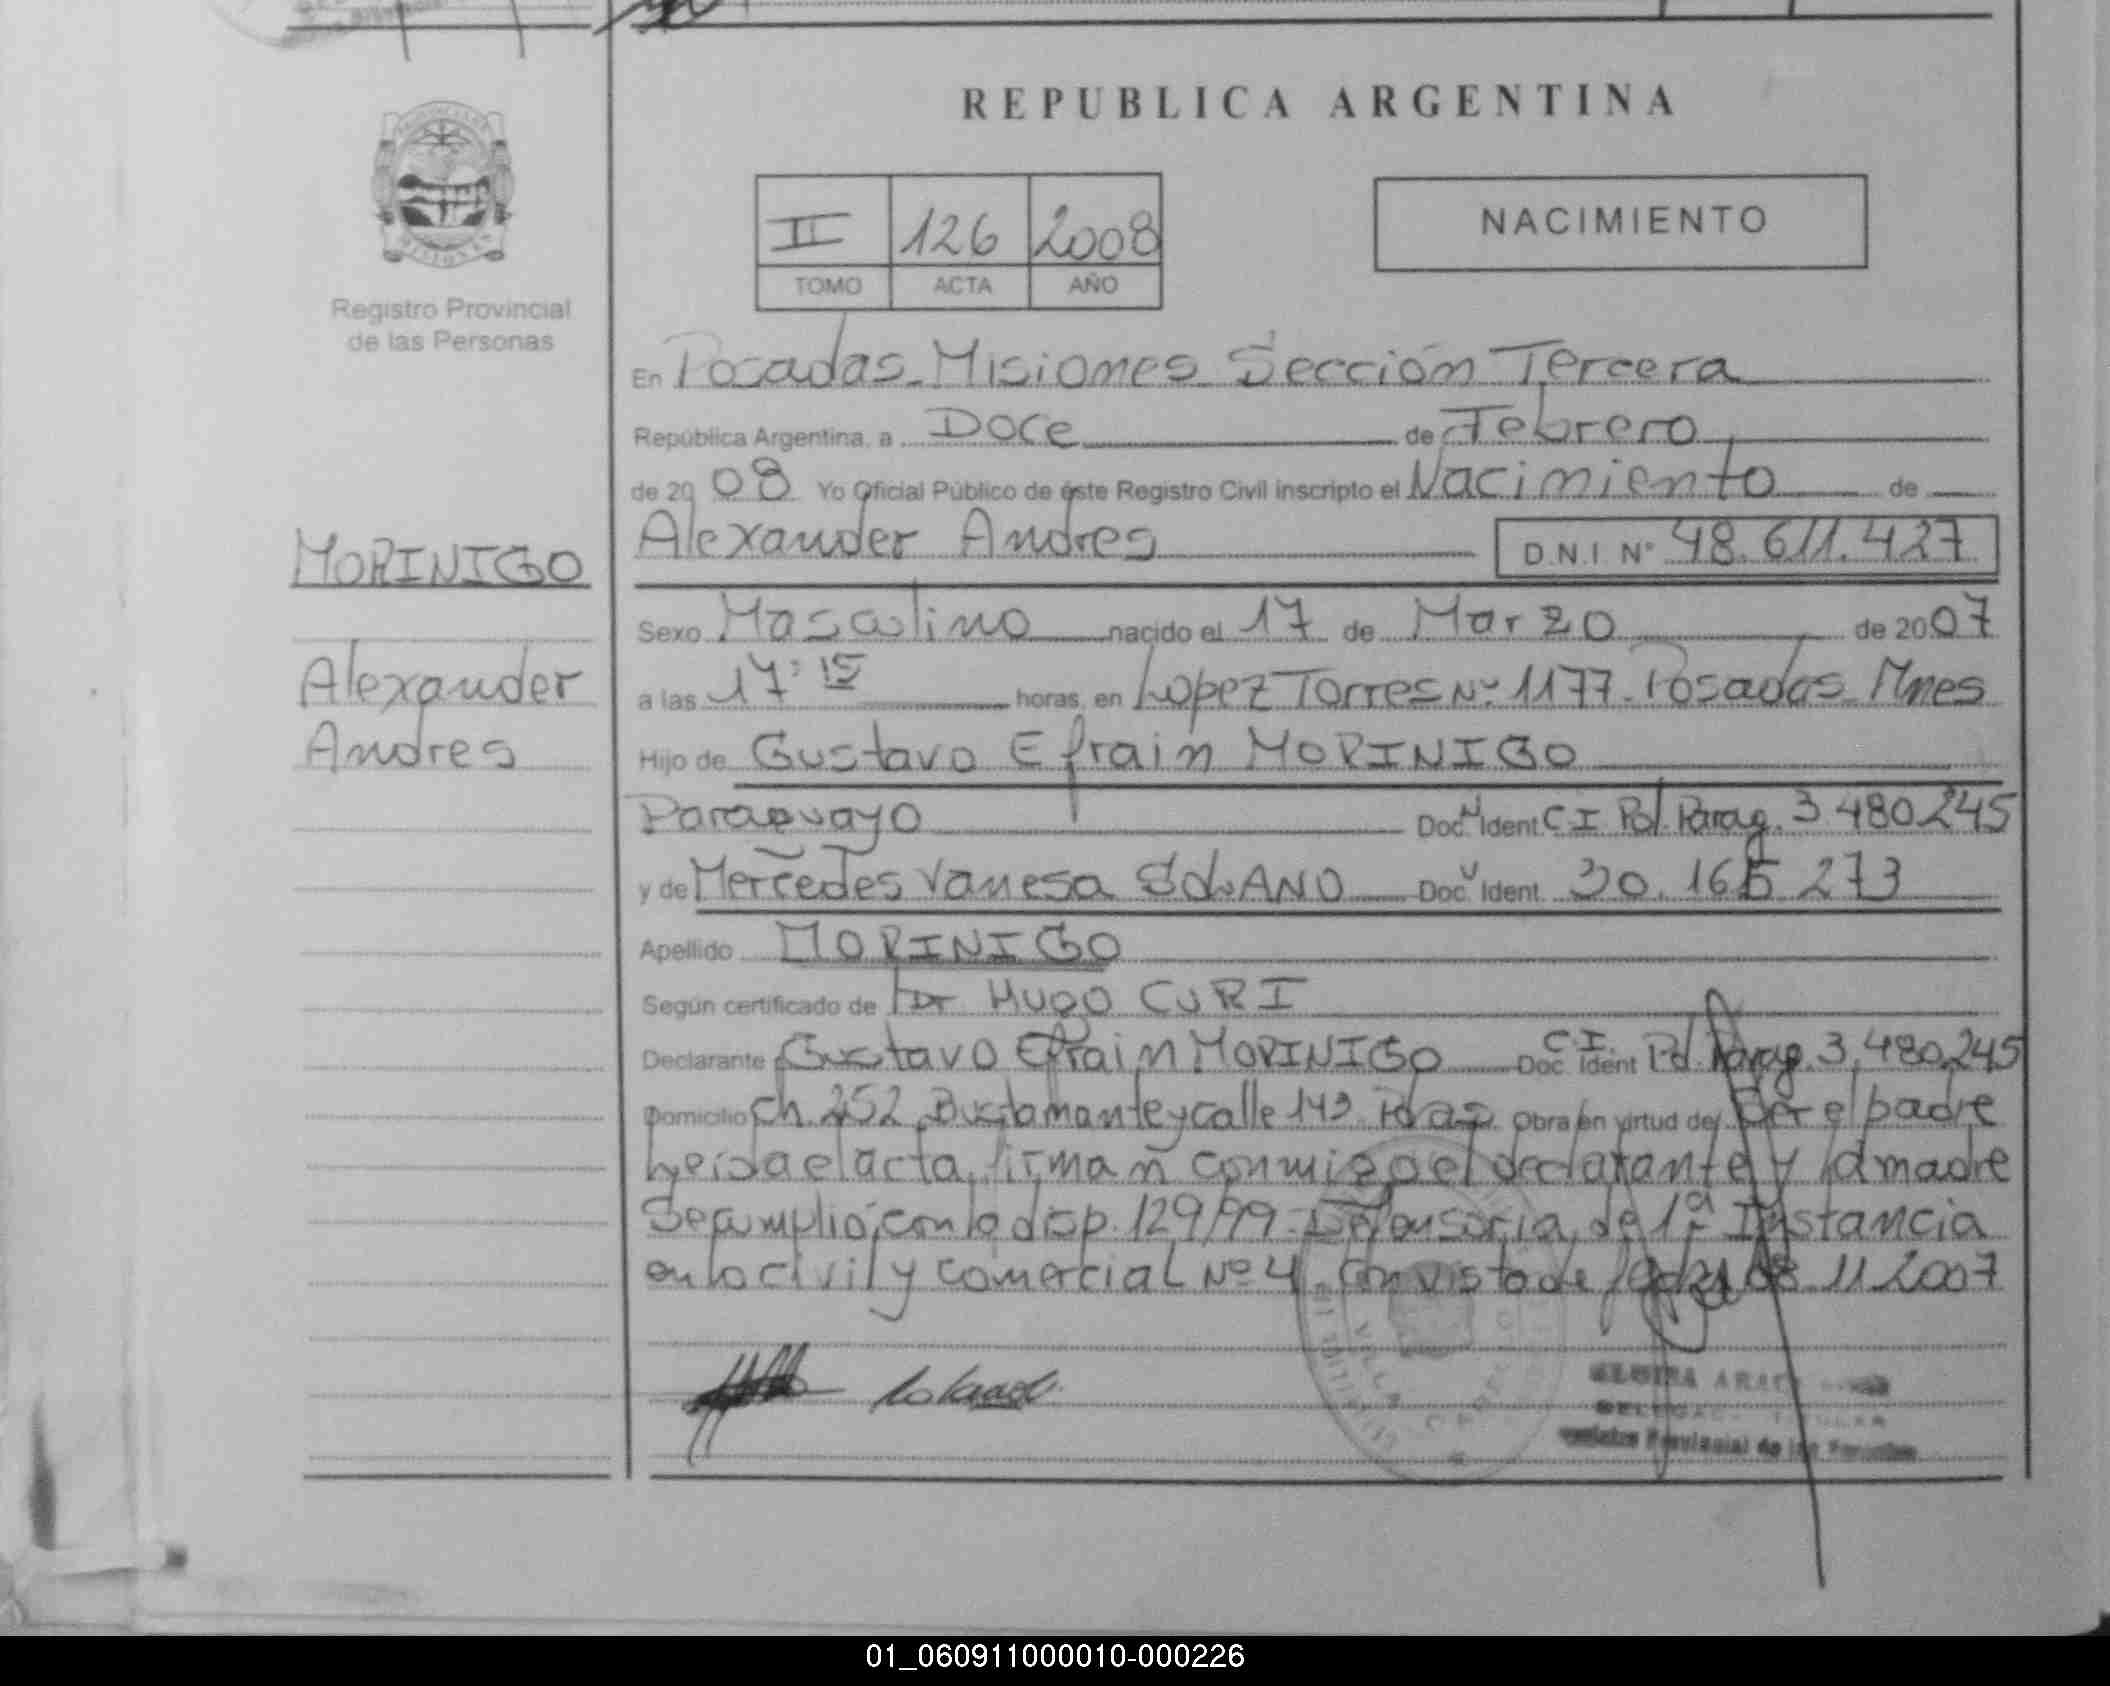 REPUBLICA ARGENTINA
II 126 2008
TOMO ACTA AÑO
NACIMIENTO
Registro Provincial
de las Personas
MORINIGO
Alexander
Andres
En Posadas Misiones Sección Tercera
República Argentina, a Doce de Febrero
de 20 08 Yo Oficial Público de éste Registro Civil inscripto el Nacimiento de
Alexander Andres D.N.I. Nº 48.611.427
Sexo Masculino nacido el 17 de Marzo de 2007
a las 17:15 horas, en Lopez Torres Nº 1177 - Posadas Mnes
Hijo de Gustavo Efrain MORINIGO
Paraguayo Doc. Ident C I Pol. Parag. 3 480245
y de Mercedes Vanesa SOLANO Doc. Ident. 30.165 273
Apellido MORINIGO
Según certificado de Dr HUGO CURI
Declarante Gustavo Efrain MORINIGO C.I. Doc. Ident Pol. Parag. 3.480.245
Domicilio Ch. 252 Bustamante y calle 149 Pdas Obra en virtud de Ser el padre
Leida el acta, firman conmigo el declarante y la madre
Se cumplió con la disp. 129/99 - Defensoria de 1ª Instancia
en lo civil y comercial Nº 4 - Con vista de fecha 08 11 2007
Registro Provincial de las Personas
01_060911000010-000226